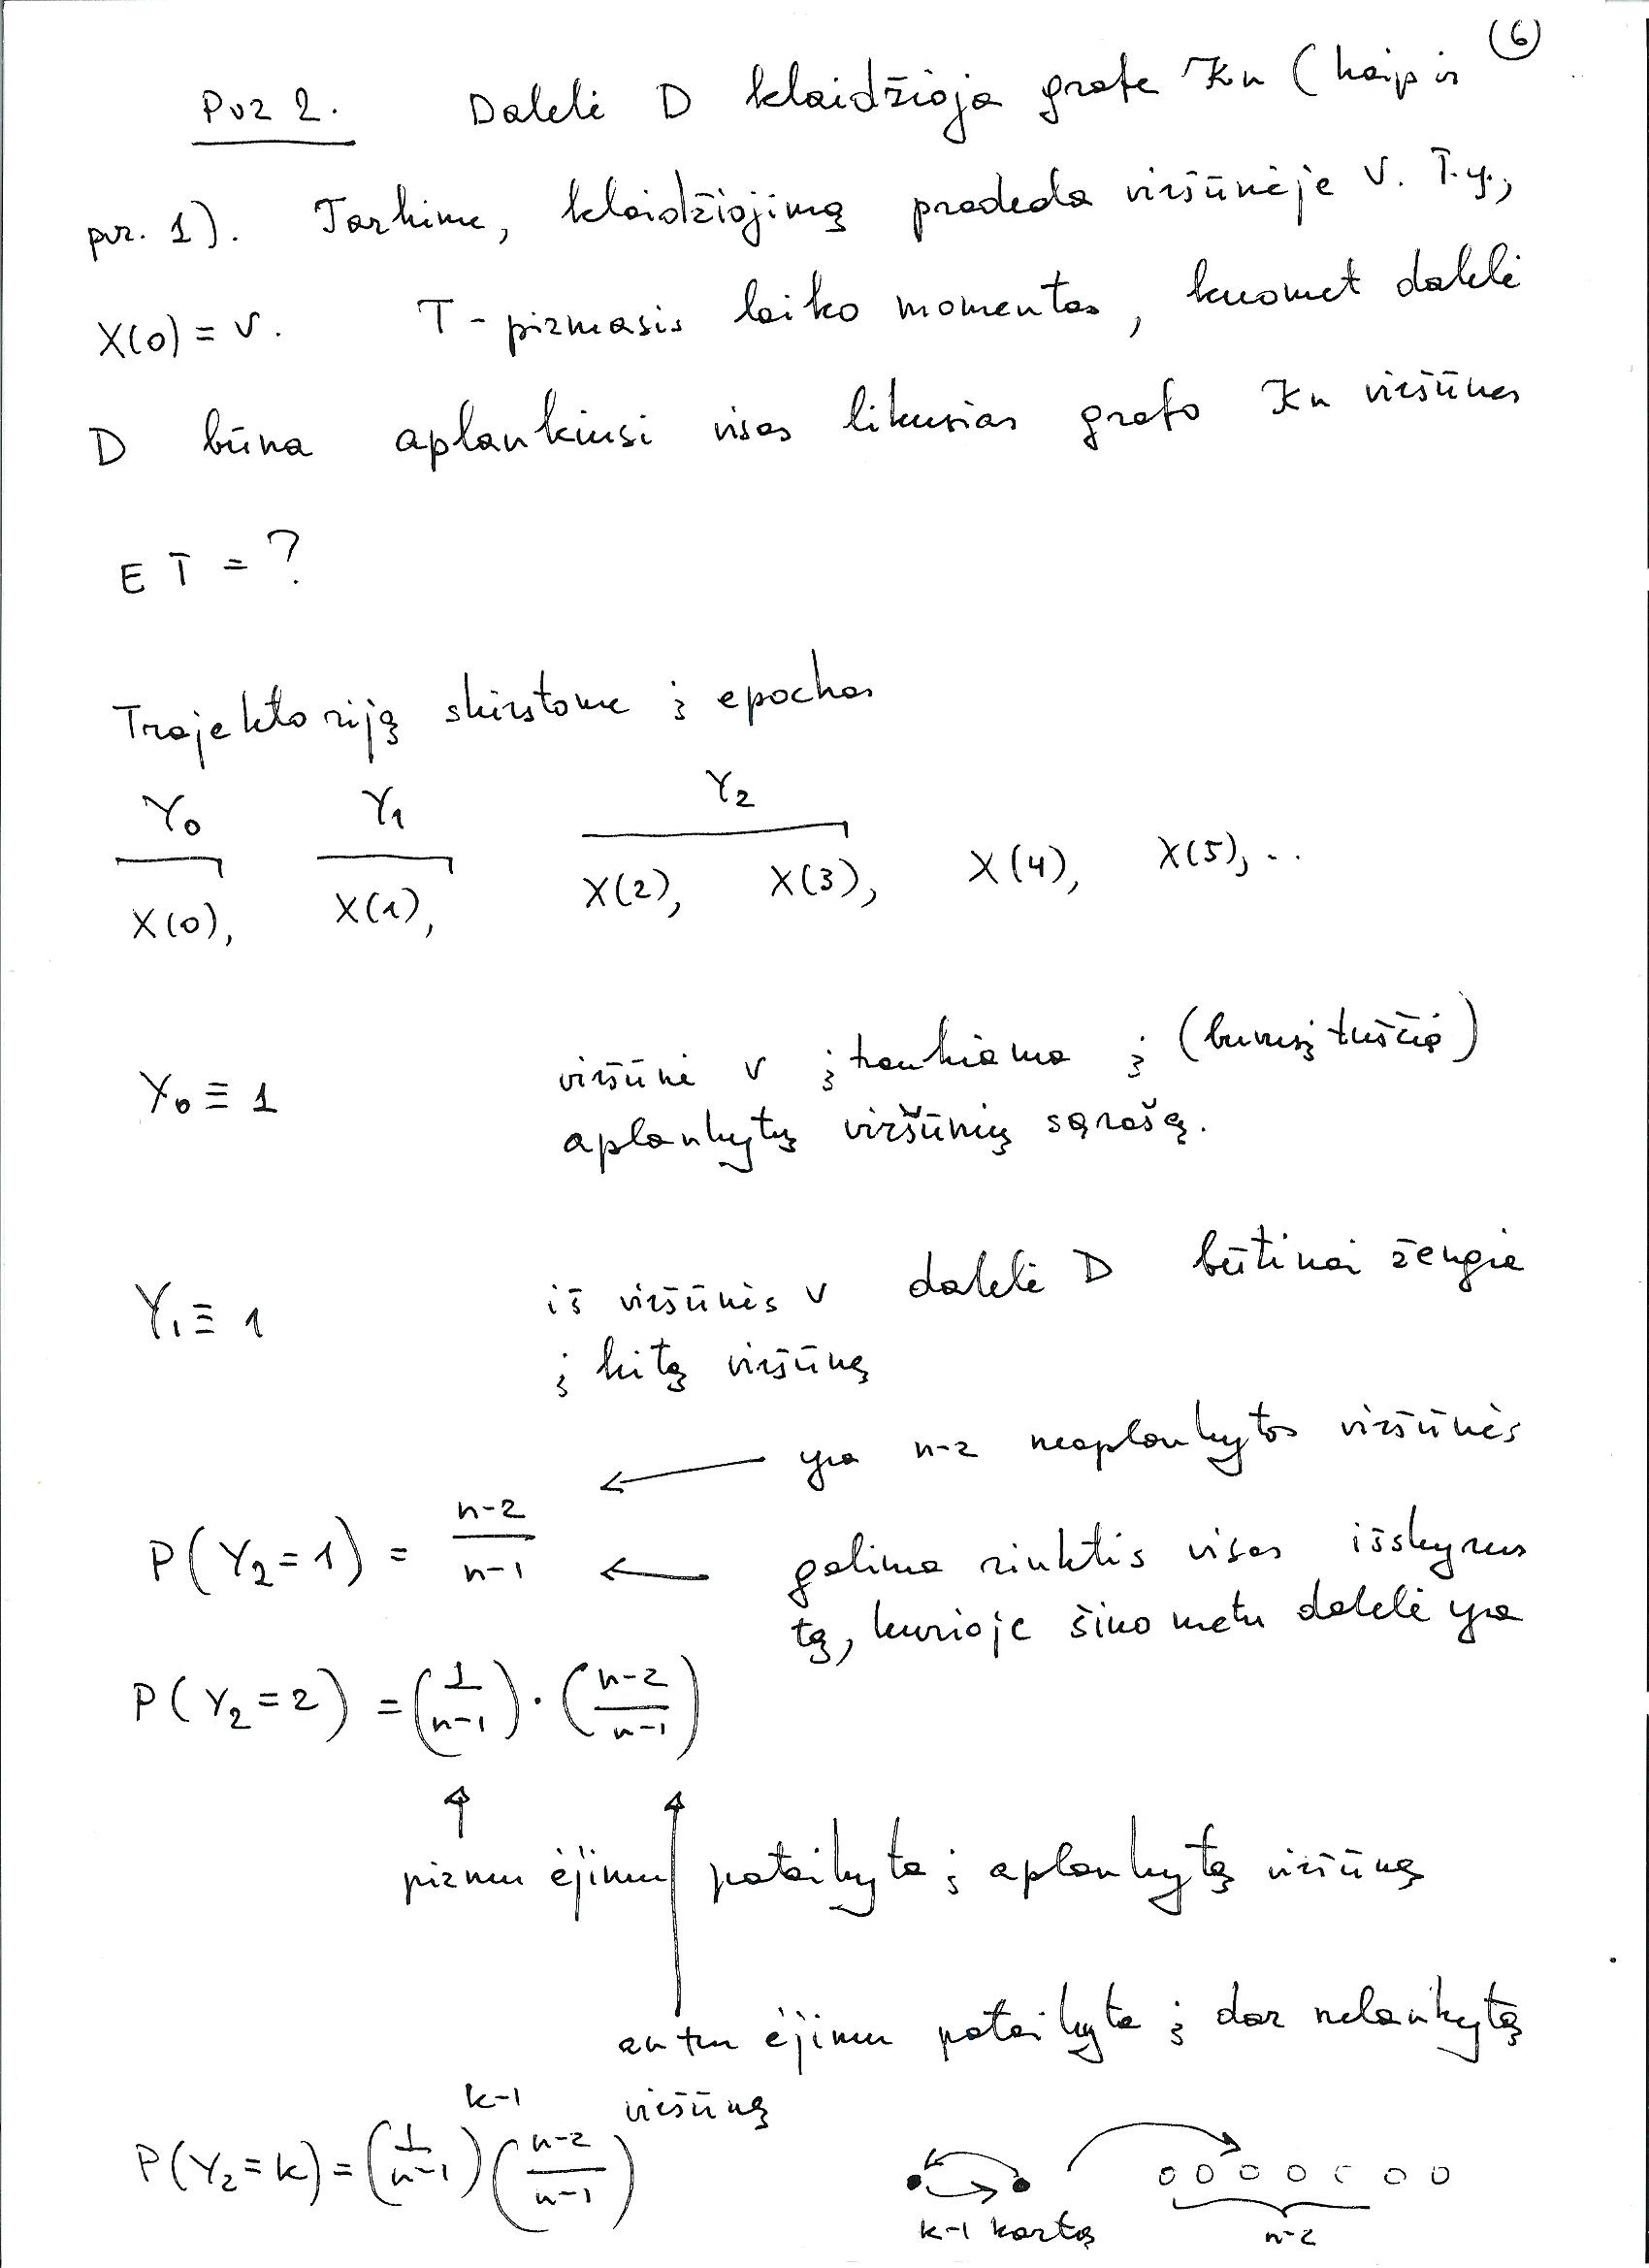 (6)
Pvz 2. Dalelė D klaidžioja grafe Kn (kaip ir
pvz. 1). Tarkime, klaidžiojimą pradeda viršūnėje v. T.y.,
X(0) = v. T - pirmasis laiko momentas, kuomet dalelė
D būna aplankiusi visas likusias grafo Kn viršūnes
E T = ?
Trajektoriją skirstome į epochas
Y0 Y1 Y2
X(0), X(1), X(2), X(3), X(4), X(5), ..
Y0 ≡ 1 viršūnė v įtraukiama į (buvusį tuščią)
aplankytų viršūnių sąrašą.
Y1 ≡ 1 iš viršūnės v dalelė D būtinai žengia
į kitą viršūnę
← yra n-2 neaplankytos viršūnės
P(Y2=1) = (n-2)/(n-1) ← galima rinktis visas išskyrus
tą, kurioje šiuo metu dalelė yra
P(Y2=2) = (1/(n-1)) · ((n-2)/(n-1))
pirmu ėjimu pataikyta į aplankytą viršūnę
antru ėjimu pataikyta į dar nelankytą
viršūnę
P(Y2=k) = (1/(n-1))^(k-1) ((n-2)/(n-1))
k-1 kartą n-2